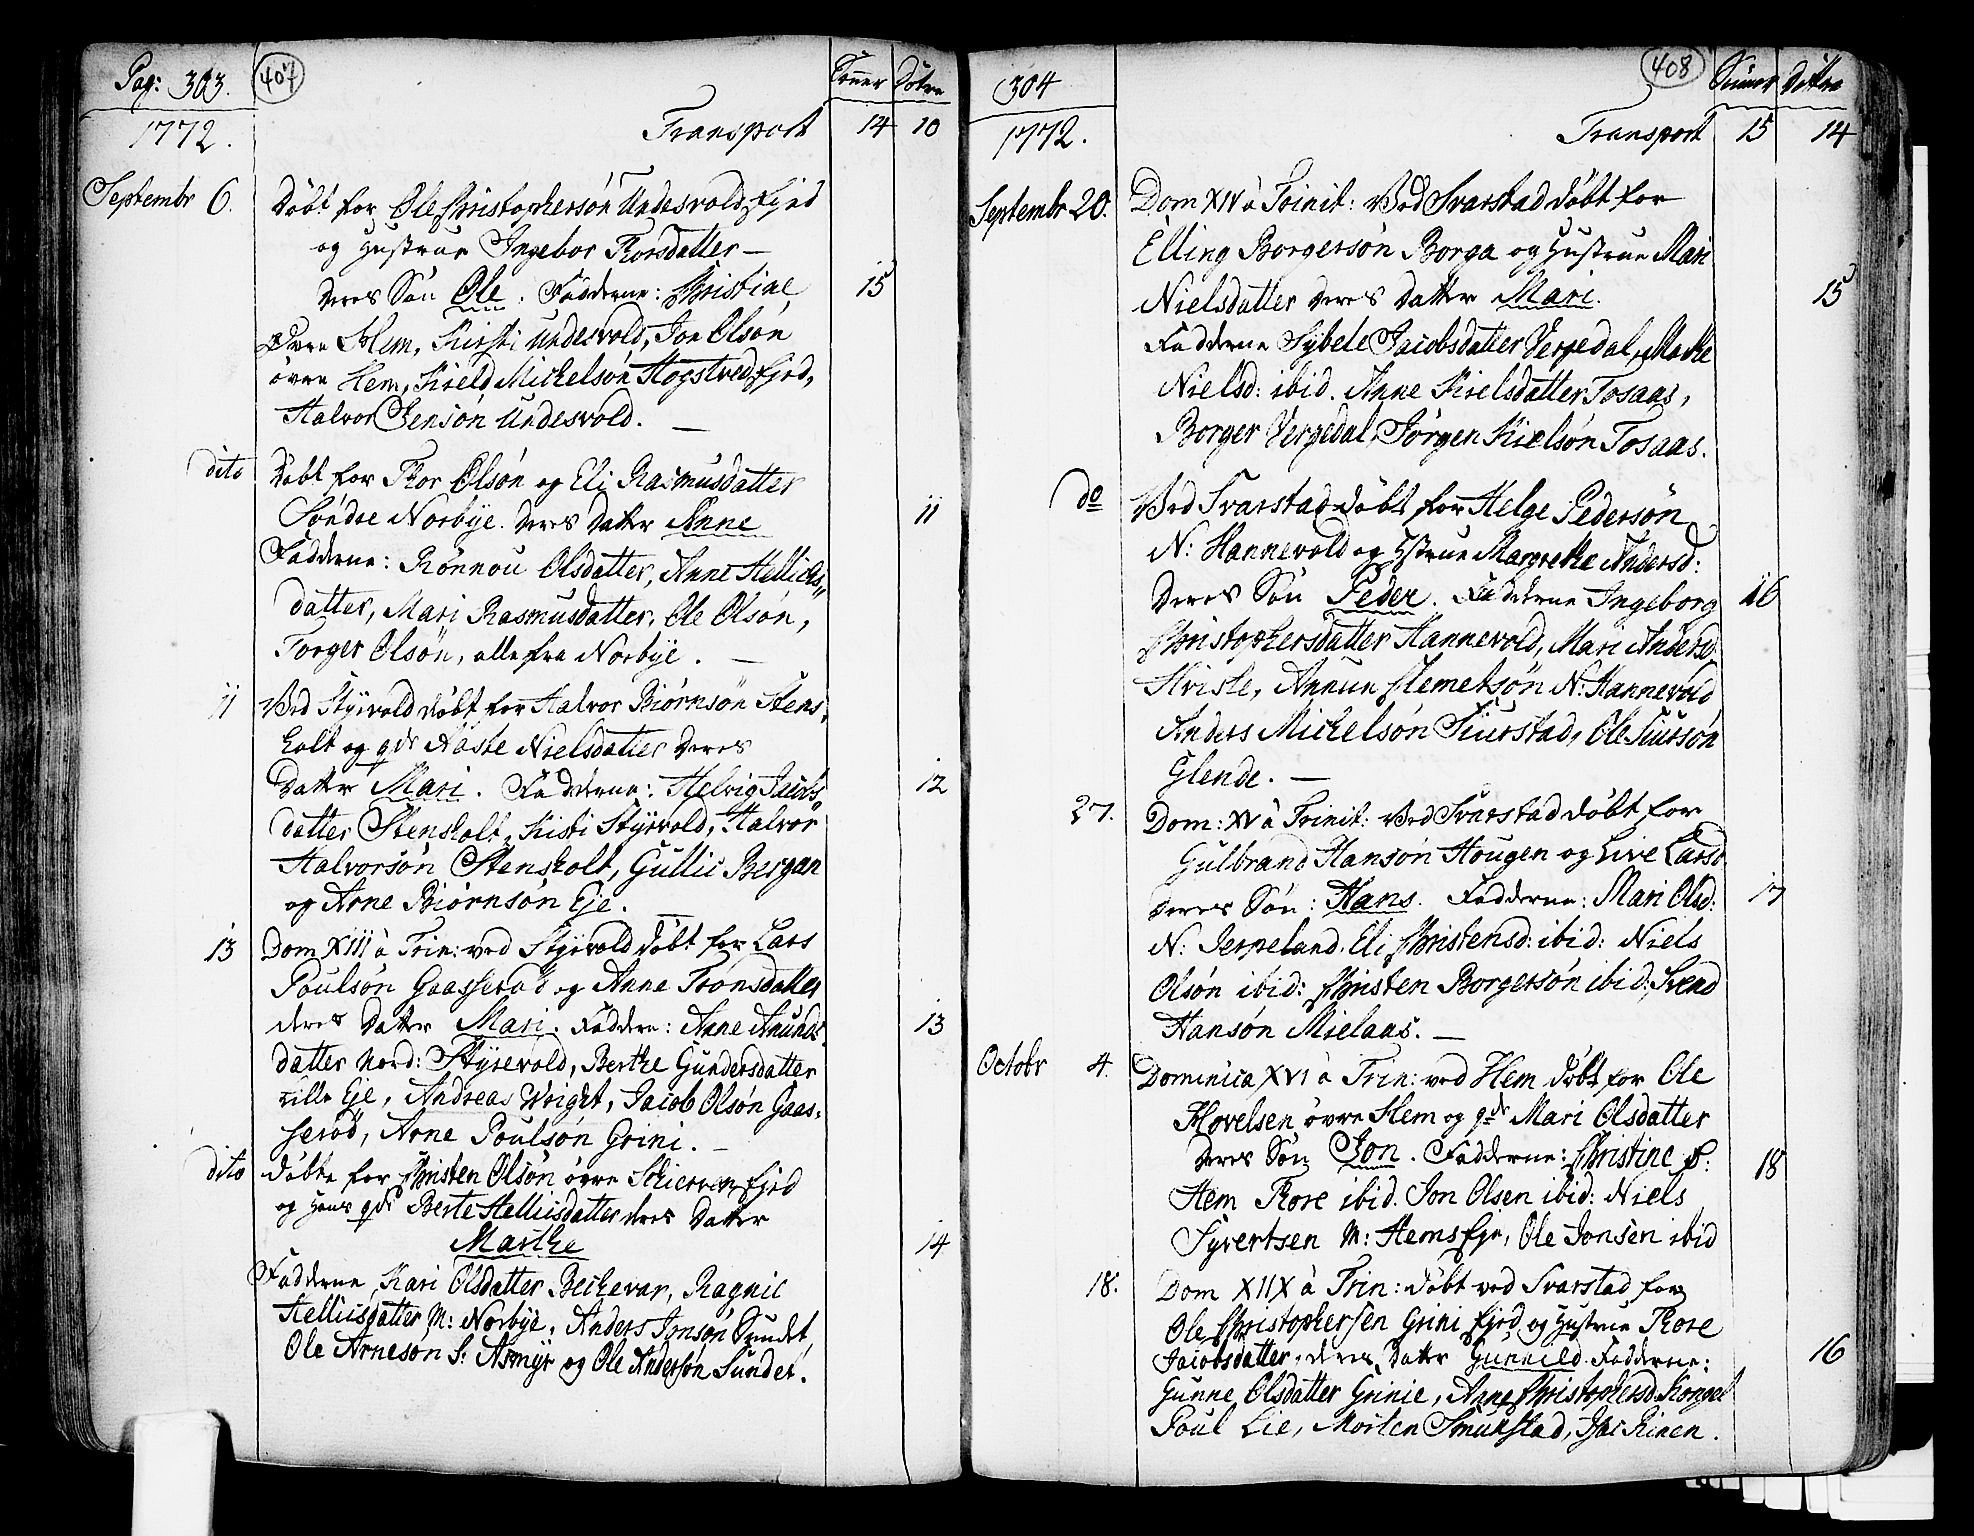 Pag: 303. 407 Sönner Dötre
1772. Transport 14 10
Septembr 6. Döbt for Ole Christophersön Undesvold Ejed
og Hustrue Ingebor Thorsdatter —
deres Sön Ole. Fadderne: Christine 15
övre Hem, Kirsti Undesvold, Jon Olsön
övre Hem, Kield Michelsön Hogstved Ejed,
Halvor Jensön Undesvold. —
dito Döbt for Thor Olsön og Eli Rasmusdatter
Söndre Norbÿe. deres Datter Anne 11
Fadderne: Rönnou Olsdatter, Anne Hellichs
datter, Mari Rasmusdatter, Ole Olsön,
Torger Olsön, alle fra Norbÿe. —
11 Ved Styrvold döbt for Halvor Biörnsön Stens,
holt og qde Aaste Nielsdatter deres
Datter Mari. Fadderne: Helvig Jacobs 12
datter Stensholt, Kisti Styrvold, Halvor
Halvorsön Stensholt, Gullic Bergan
og Arne Biörnsön Eje. —
13 Dom XIII à Trin: ved Styrvold döbt for Lars
Poulsön Gaasserød og Anne Trönsdatter
deres Datter Mari. Faddere: Anne Anunds 13
datter Nord: Styrevold, Berthe Gundersdatter
Lille Eje, Andreas Wright, Jacob Olsön Gaas,
serød, Arne Poulsön Grini. —
dito döbt for Christen Olsön övre Skierven Ejed
og Hans qde Berte Hellicsdatter deres Datter
Marthe 14
Fadderne, Kari Olsdatter Bechevar, Ragnil
Hellicsdatter M: Norbÿe, Anders Jonsön Sundet,
Ole Arnesön S: Asmyr og Ole Andersön Sundet.
304 408 Sönner Döttre
1772. Transport 15 14
Septembr 20. Dom XIV à Trinit: Ved Svarstad döbt for
Elling Borgersön Borga og Hustrue Mari
Nielsdatter deres Datter Mari. 15
Fadderne Sybele Jacobsdatter Verpedal, Marthe
Nielsd: ibid. Anne Kielsdatter Tosaas,
Borger Verpedal, Jörgen Kielsön Tosaas.
do Ved Svarstad döbt for Helge Pedersön
N: Hannevold og Hstrue Margrethe Andersd:
deres Sön Peder. Fadderne Ingeborg 16
Christophersdatter Hannevold, Mari Andersd
Hviste, Annun Klemetsön N: Hannevold
Anders Michelsön Siurstad, Ole Siursön
Glende. —
27. Dom: XV à Trinit: Ved Svarstad döbt for
Gulbrand Hansön Hougen og Live Larsd
deres Sön: Hans. Fadderne: Mari Olsd: 17
N: Jerpeland, Eli Christensd: ibid: Niels
Olsön ibid: Christen Borgersön ibid: Svend
Hansön Mielaas. —
Octobr 4. Dominica XVI à Trin: ved Hem döbt for Ole
Hovelsen övre Hem og qde Mari Olsdatter
deres Sön Jon. Fadderne: Christine ö: 18
Hem Thore ibid. Jon Olsen ibid: Niels
Syvertsen M: Hems Eje, Ole Jonsen ibid
18. Dom XIIX à Trin: döbt ved Svarstad for
Ole Christophersen Grini Ejed og Hustrue Thore
Jacobsdatter, deres Datter Gunnild. Fadderne: 16
Gunne Olsdatter Grinie, Anne Christophersd: Kongel
Poul Lie, Morten Smukstad, Isac Rinen.